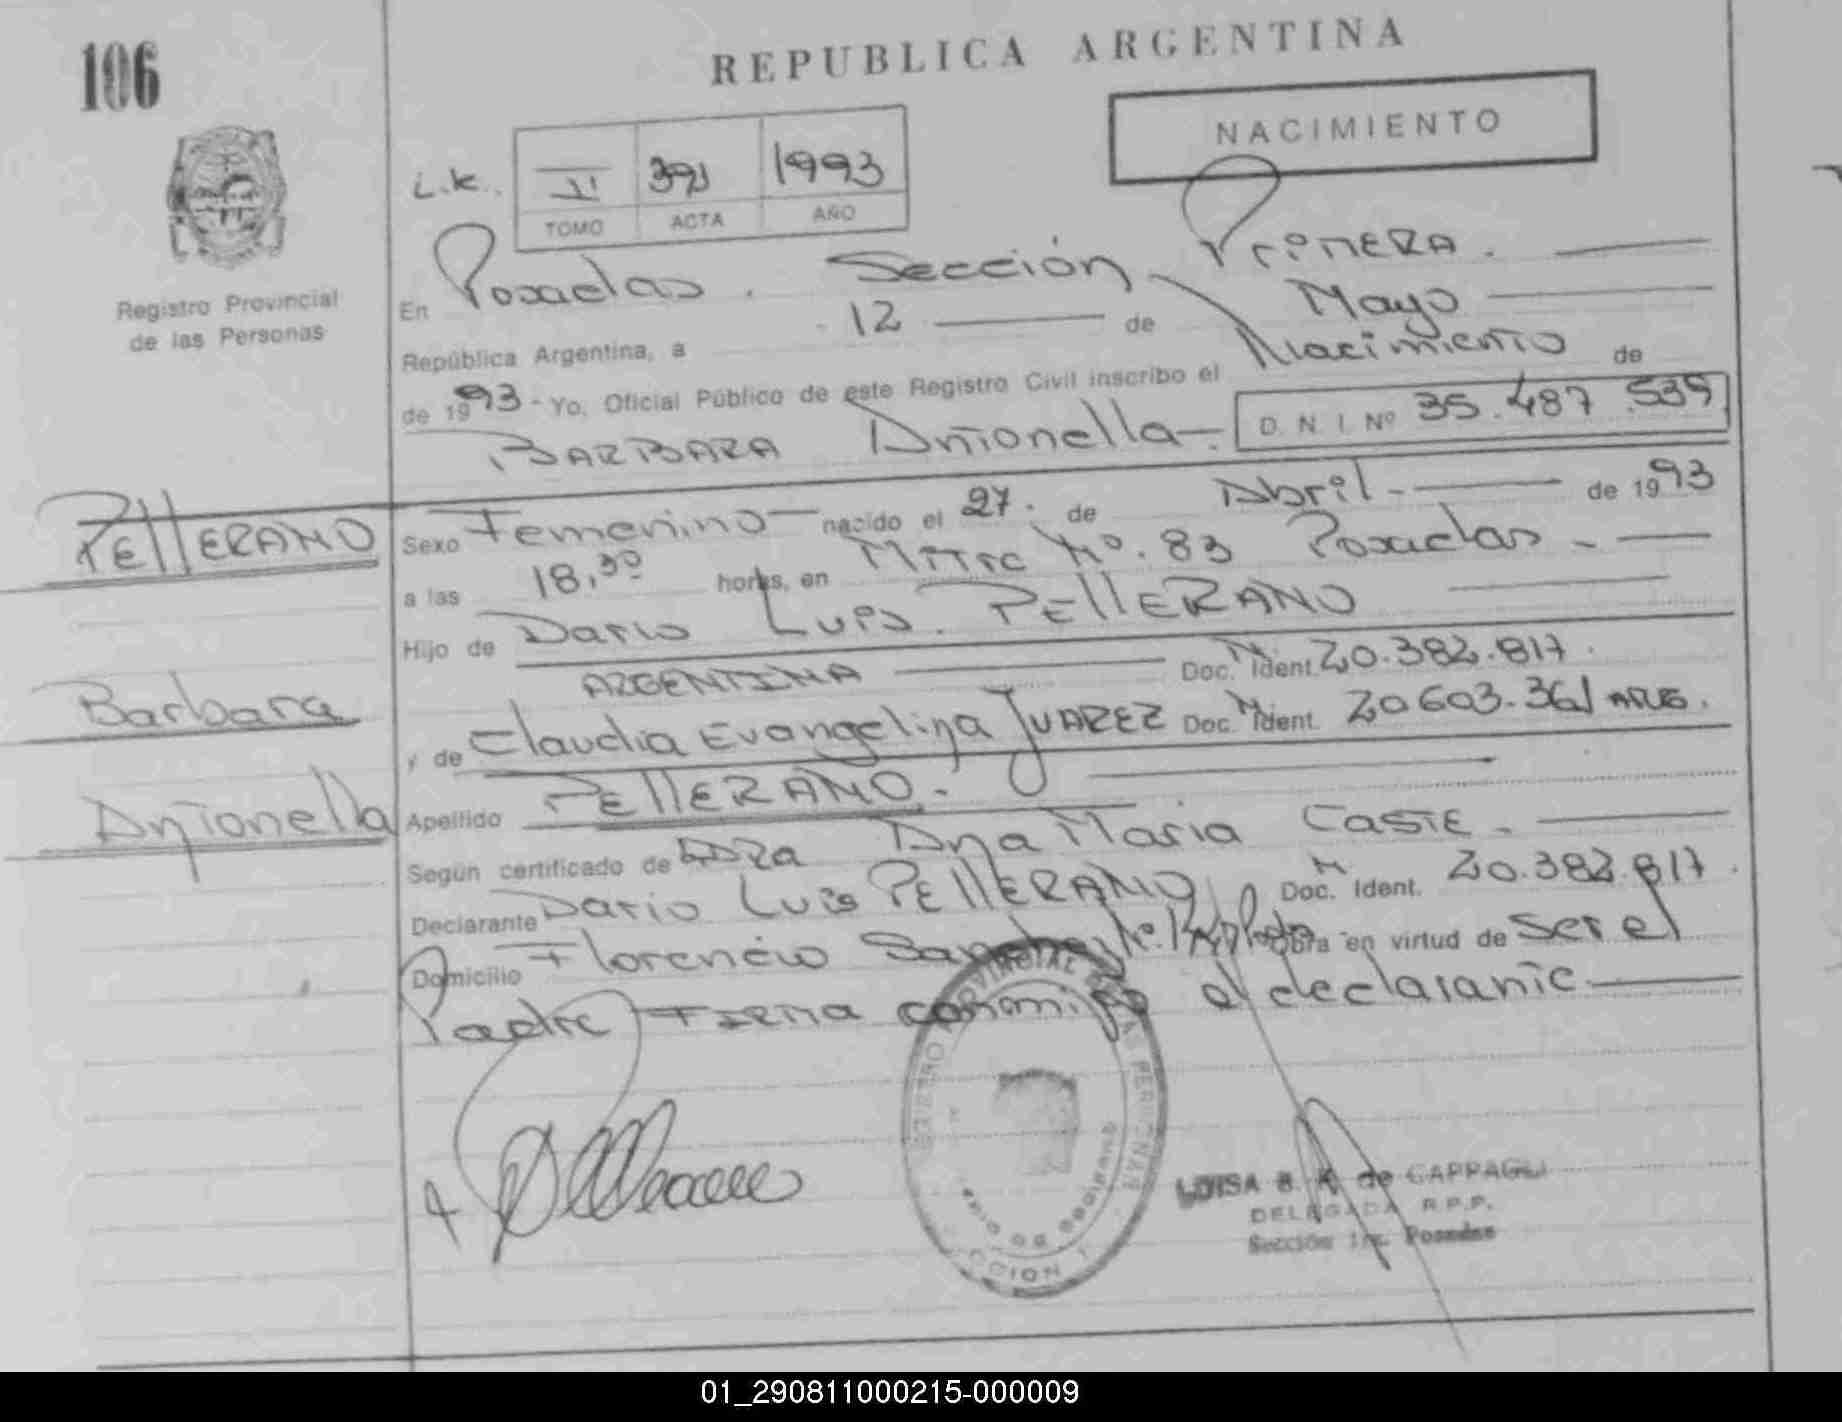 106
REPUBLICA ARGENTINA
NACIMIENTO
II 391 1993
TOMO ACTA AÑO
Registro Provincial
de las Personas
En Posadas. Sección Primera.
República Argentina, a 12 de Mayo
de 1993 - Yo, Oficial Público de este Registro Civil inscribo el Nacimiento de
BARBARA Antonella D. N. I. Nº 35.487.539
PELLERANO
Barbara
Antonella
Sexo Femenino nacido el 27. de Abril de 1993
a las 18,30 horas, en Mitre Nº. 83 Posadas
Hijo de Dario Luis. PELLERANO
ARGENTINA Doc. N Ident. 20.382.817.
y de Claudia Evangelina JUAREZ Doc. N Ident. 20603.361
Apellido PELLERANO.
Según certificado de Dra Ana Maria
Declarante Dario Luis PELLERANO Doc. N Ident. 20.382.817.
Domicilio Florencio Sanchez Nº. Obra en virtud de ser el
Padre Firma conmigo el declarante
LUISA B. K. de CAPPAGLI
DELEGADA R.P.P.
Sección 1ra. Posadas
01_290811000215-000009